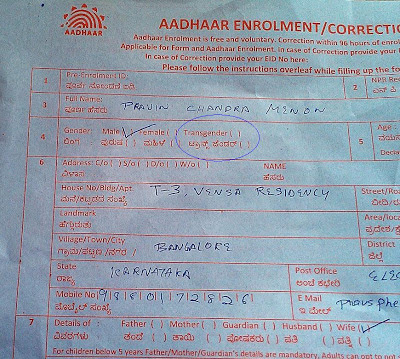 AADHAAR
AADHAAR ENROLMENT/CORRECTIO
Aadhaar Enrolment is free and voluntary. Correction within 96 hours of enrol
Applicable for Form and Aadhaar Enrolment. in case of Correction provide your
In case of Correction provide your EID No here:
Please follow the instructions overleaf while filling up the fo
1 Pre-Enrolment ID: 2 NPR Rec
ಪೂರ್ವ ನೋಂದಣಿ ಐಡಿ ಎನ್ ಪಿ
3 Full Name: PRAVIN CHANDRA MENON
ಪೂರ್ಣ ಹೆಸರು
4 Gender: Male Female ( ) Transgender ( ) 5 Age
ಲಿಂಗ : ಪುರುಷ ಮಹಿಳೆ ( ) ಟ್ರಾನ್ಸ್ ಜೆಂಡರ್ ( ) ವಯಸ
Decla
6 Address: C/o ( ) S/o ( ) D/o ( ) W/o ( ) NAME
ವಿಳಾಸ ಹೆಸರು
House No/Bldg/Apt. T-3, VENSA RESIDENCY Street/Roa
ಮನೆ/ಕಟ್ಟಡದ ಸಂಖ್ಯೆ ಬೀದಿ/ರ
Landmark Area/loca
ಹೆಗ್ಗುರುತು ಪ್ರದೇಶ/ಕ
Village/Town/City BANGALORE District
ಗ್ರಾಮ/ಪಟ್ಟಣ /ನಗರ / ಜಿಲ್ಲೆ
State KARNATAKA Post Office ELEC
ರಾಜ್ಯ ಅಂಚೆ ಕಛೇರಿ
Mobile No 9880172826 E Mail
ಮೊಬೈಲ್ ಸಂಖ್ಯೆ ಇ ಮೇಲ್ pravsphe
7 Details of : Father ( ) Mother ( ) Guardian ( ) Husband ( ) Wife
ವಿವರಗಳು ತಂದೆ ( ) ತಾಯಿ ( ) ಪೋಷಕರು ( ) ಪತಿ ( ) ಪತ್ನಿ
For children below 5 years Father/Mother/Guardian's details are mandatory. Adults can opt to not